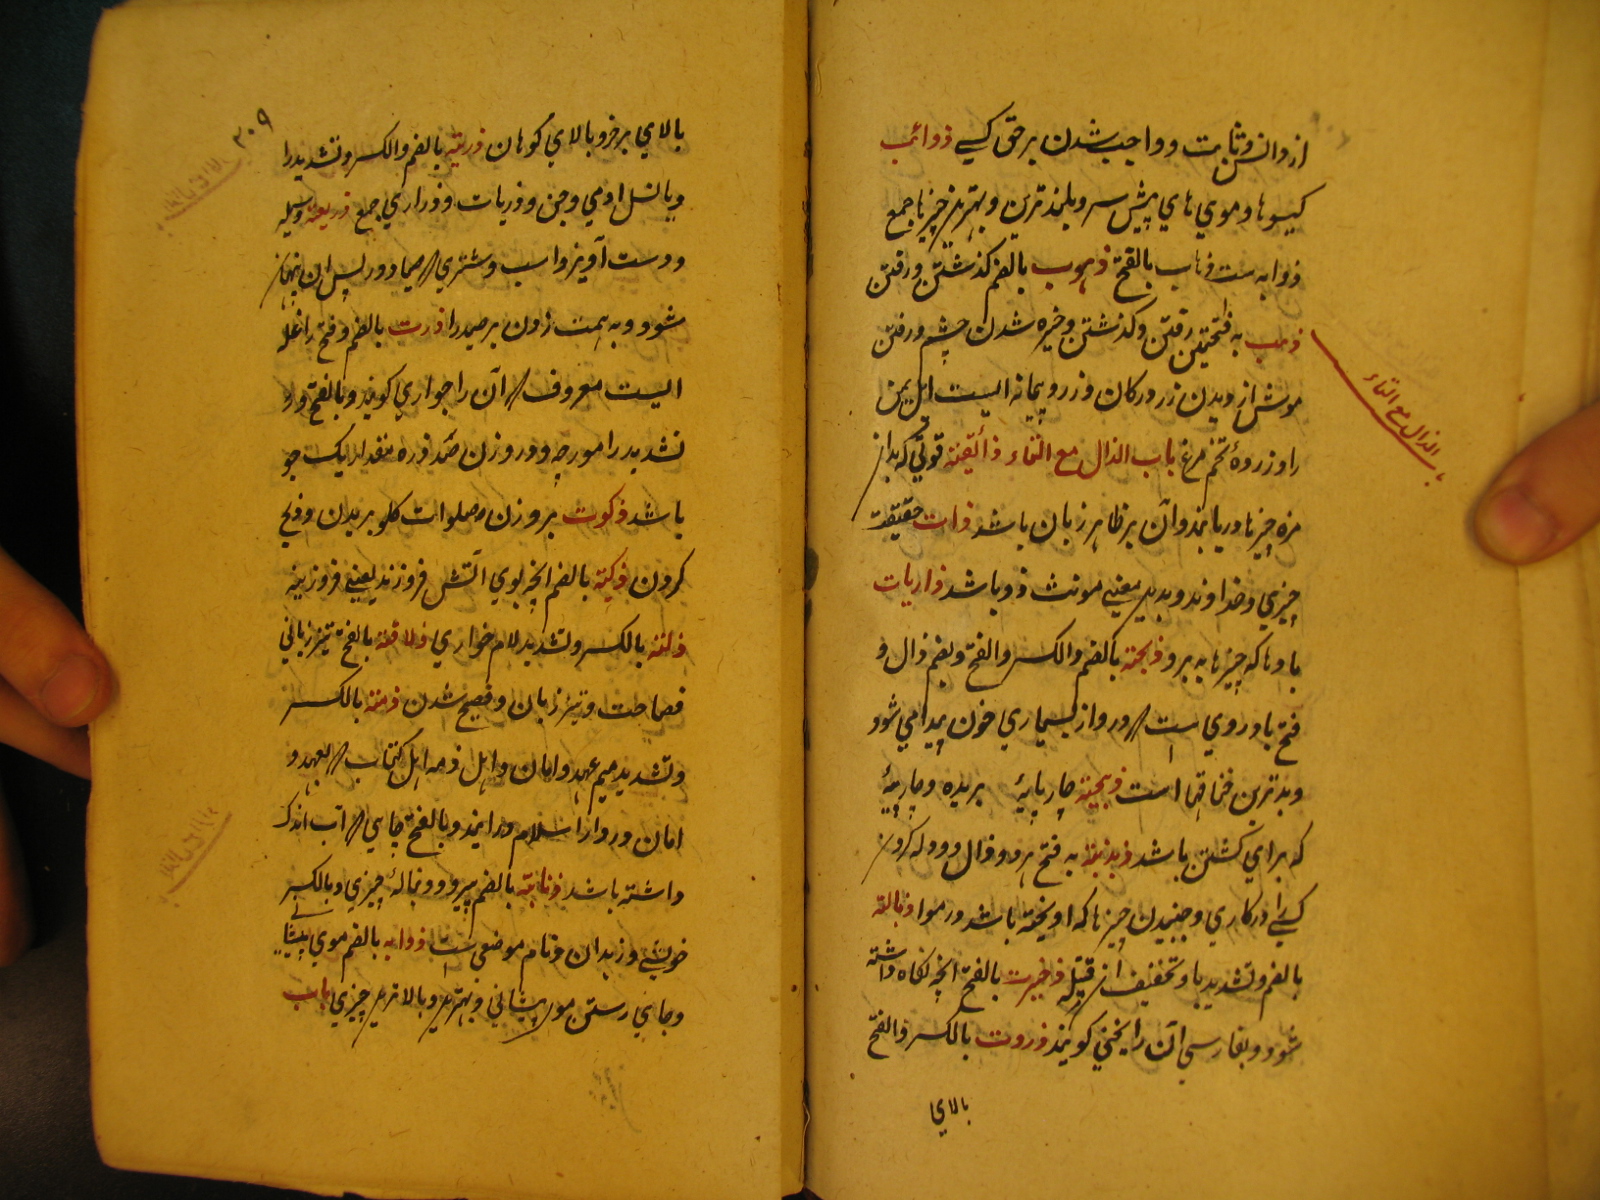 از دانش و ثابت و واجب شدن بر حق کسے ذوائب
کیسوها و موي هاي پیش سر و بلند ترین و بهترین چیزها جمع
ذوابه ست ذهاب بالفتح ذهوب بالضم کذشتن و رفتن
ذهب به فتحتین رفتن و کذشتن و خیره شدن چشم و رفتن
هوش از دیدن زر در کان و زر و پیمانه الیست اهل یمن
را و زردهٔ تخم مرغ باب الذال مع التاء ذائقته قوتي که بداز
مزه چیزها دریابند و آن بر ظاهر زبان باشد ذات حقیقت
چیزي و خداوند و بدین معنے مونث ذو باشد ذاریات
بادها که چیزها به برد ذبحته بالضم والکسر والفتح و بضم ذال و
فتح با دردي است // در و از بسیاري خون پیدا مي شود
و بدترین خناقها است ذبیحته چارپایهٔ بریده و چارپایهٔ
که براي کشتن باشد ذبذبته به فتح هر دو ذال دو دله کردن
کسے را در کاري و جنبیدن چیزها که اویخته باشد در هوا ذبالته
بالضم و تشدید با و تخفیف ان فتیله ذخیرت بالفتح انچه نکاه داشته
شود و بفارسي آن را یخني کویند ذروت بالکسر والفتح
بالاي
الذال مع التاء
۲۰۹
بالاي هر چیز و بالاي کوهان ذریته بالضم والکسر و تشدید را
و یا نسل ادمي و جن و ذریات و ذراري جمع ذریعته وسیله
و دست آویز و اسب و شتري // صیاد در پس ان پنهان
شود و به همت زدن بر صید را ذرت بالضم و فتح را غله
الیست معروف // آن را جواري کویند و بالفتح و
تشدید را مورچه و در وزن صد ذره مقدار یک جو
باشد ذکوت بر وزن و صلوات کلو بریدن و ذبح
کردن ذکیته بالضم انچه بوي اتش فروزند یعنے فروزینه
ذلته بالکسر و تشدید لام خواري ذلاقته بالفتح تیز زباني
فصاحت و تیز زبان و فصیح شدن ذمته بالکسر
و تشدید میم عهد و امان و اهل ذمه اهل کتاب // بعهد و
امان در دار اسلام درایند و بالفتح چاهي // آب اندک
داشته باشد ذنابته بالضم پیرو و دنبالهٔ چیزي و بالکسر
خویشے و زبدان و نام موضعي ست ذوابه بالضم موي پیشانے
و جاي رستن موي پیشاني و بهترین و بالاترین چیزي باب